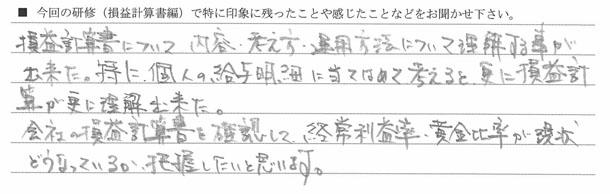 ■ 今回の研修（損益計算書編）で特に印象に残ったことや感じたことなどをお聞かせ下さい。
損益計算書について内容・考え方・運用方法について理解する事が
出来た。特に、個人の給与明細に当てはめて考えると、更に損益計
算が更に理解出来た。
会社の損益計算書を確認して、経常利益率・黄金比率が現状
どうなっているか、把握したいと思います。